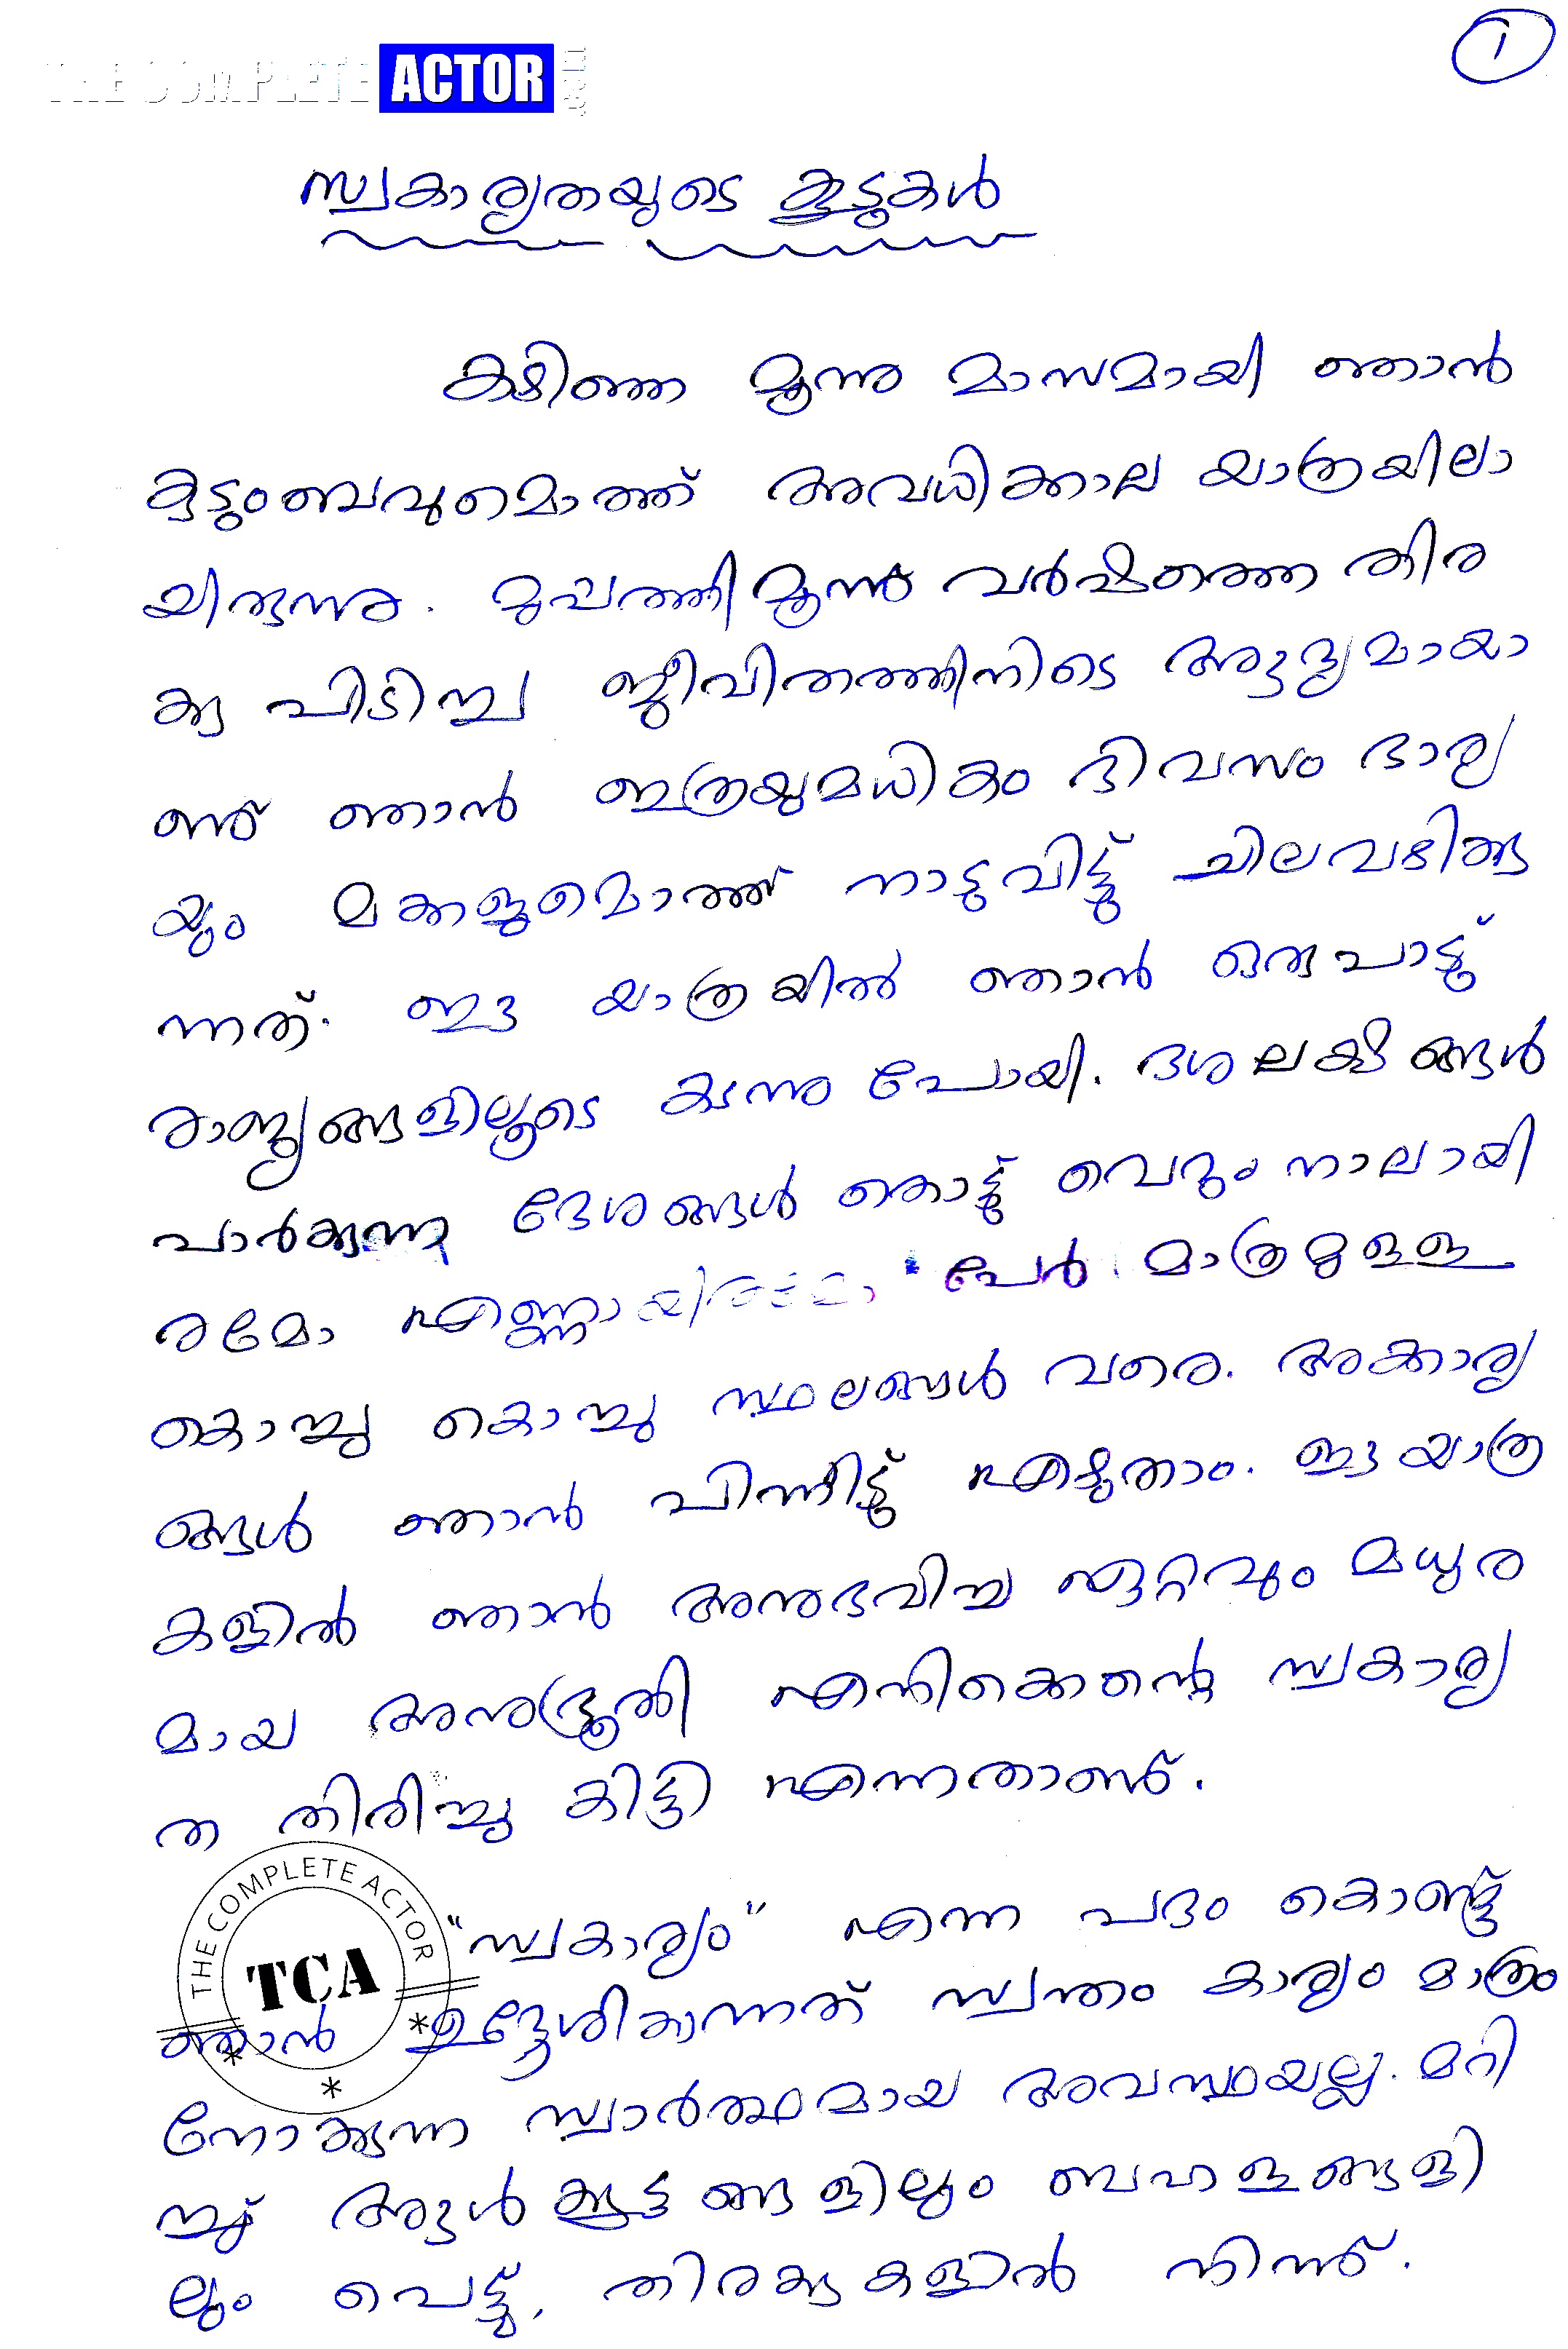 THE COMPLETE ACTOR
1
സ്വകാര്യതയുടെ കൂടുകൾ
കഴിഞ്ഞ മൂന്നു മാസമായി ഞാൻ
കുടുംബവുമൊത്ത് അവധിക്കാല യാത്രയിലാ
യിരുന്നു. മുപ്പത്തിമൂന്നു വർഷത്തെ തിര
ക്കു പിടിച്ച ജീവിതത്തിനിടെ ആദ്യമായാ
ണ് ഞാൻ ഇത്രയുമധികം ദിവസം ഭാര്യ
യും മക്കളുമൊത്ത് നാടുവിട്ട് ചിലവഴിക്കു
ന്നത്. ഈ യാത്രയിൽ ഞാൻ ഒരുപാട്
രാജ്യങ്ങളിലൂടെ കടന്നു പോയി. ദശലക്ഷങ്ങൾ
പാർക്കുന്ന ദേശങ്ങൾ തൊട്ട് വെറും നാലായി
രമോ എണ്ണായിരമോ പേർ മാത്രമുള്ള
കൊച്ചു കൊച്ചു സ്ഥലങ്ങൾ വരെ. അക്കാര്യ
ങ്ങൾ ഞാൻ പിന്നീട് എഴുതാം. ഈ യാത്ര
കളിൽ ഞാൻ അനുഭവിച്ച ഏറ്റവും മധുര
മായ അനുഭൂതി എനിക്കെന്റെ സ്വകാര്യ
ത തിരിച്ചു കിട്ടി എന്നതാണ്.
"സ്വകാര്യം" എന്ന പദം കൊണ്ട്
ഞാൻ ഉദ്ദേശിക്കുന്നത് സ്വന്തം കാര്യം മാത്രം
നോക്കുന്ന സ്വാർത്ഥമായ അവസ്ഥയല്ല. മറി
ച്ച് ആൾക്കൂട്ടങ്ങളിലും ബഹളങ്ങളി
ലും പെട്ട്, തിരക്കുകളിൽ നിന്ന്.
THE COMPLETE ACTOR
TCA